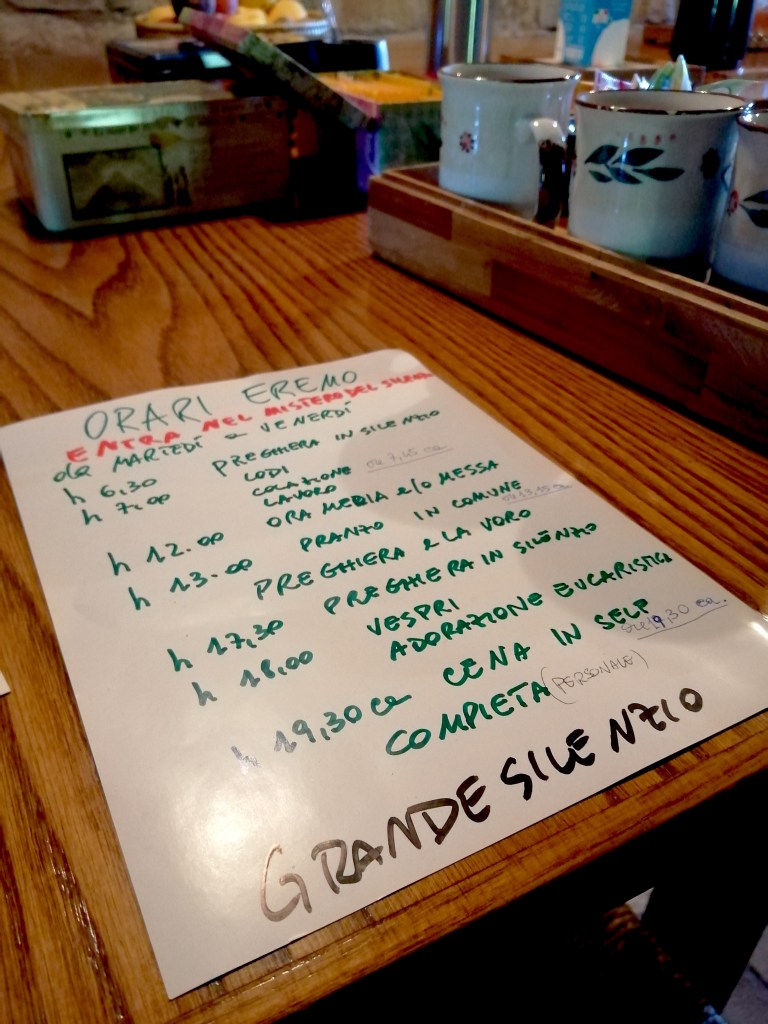 ORARI EREMO
ENTRA NEL MISTERO DEL SILENZIO
da MARTEDÌ a VENERDÌ
h 6,30 PREGHIERA IN SILENZIO
h 7,00 LODI
COLAZIONE ore 7,45 ca.
LAVORO
h 12.00 ORA MEDIA e/o MESSA
h 13.00 PRANZO IN COMUNE ore 13,15 ca.
PREGHIERA e LAVORO
h 17,30 PREGHIERA IN SILENZIO
h 18,00 VESPRI
ADORAZIONE EUCARISTICA
ore 19,30 ca.
h 19,30 ca CENA IN SELF
COMPIETA (PERSONALE)
GRANDE SILENZIO